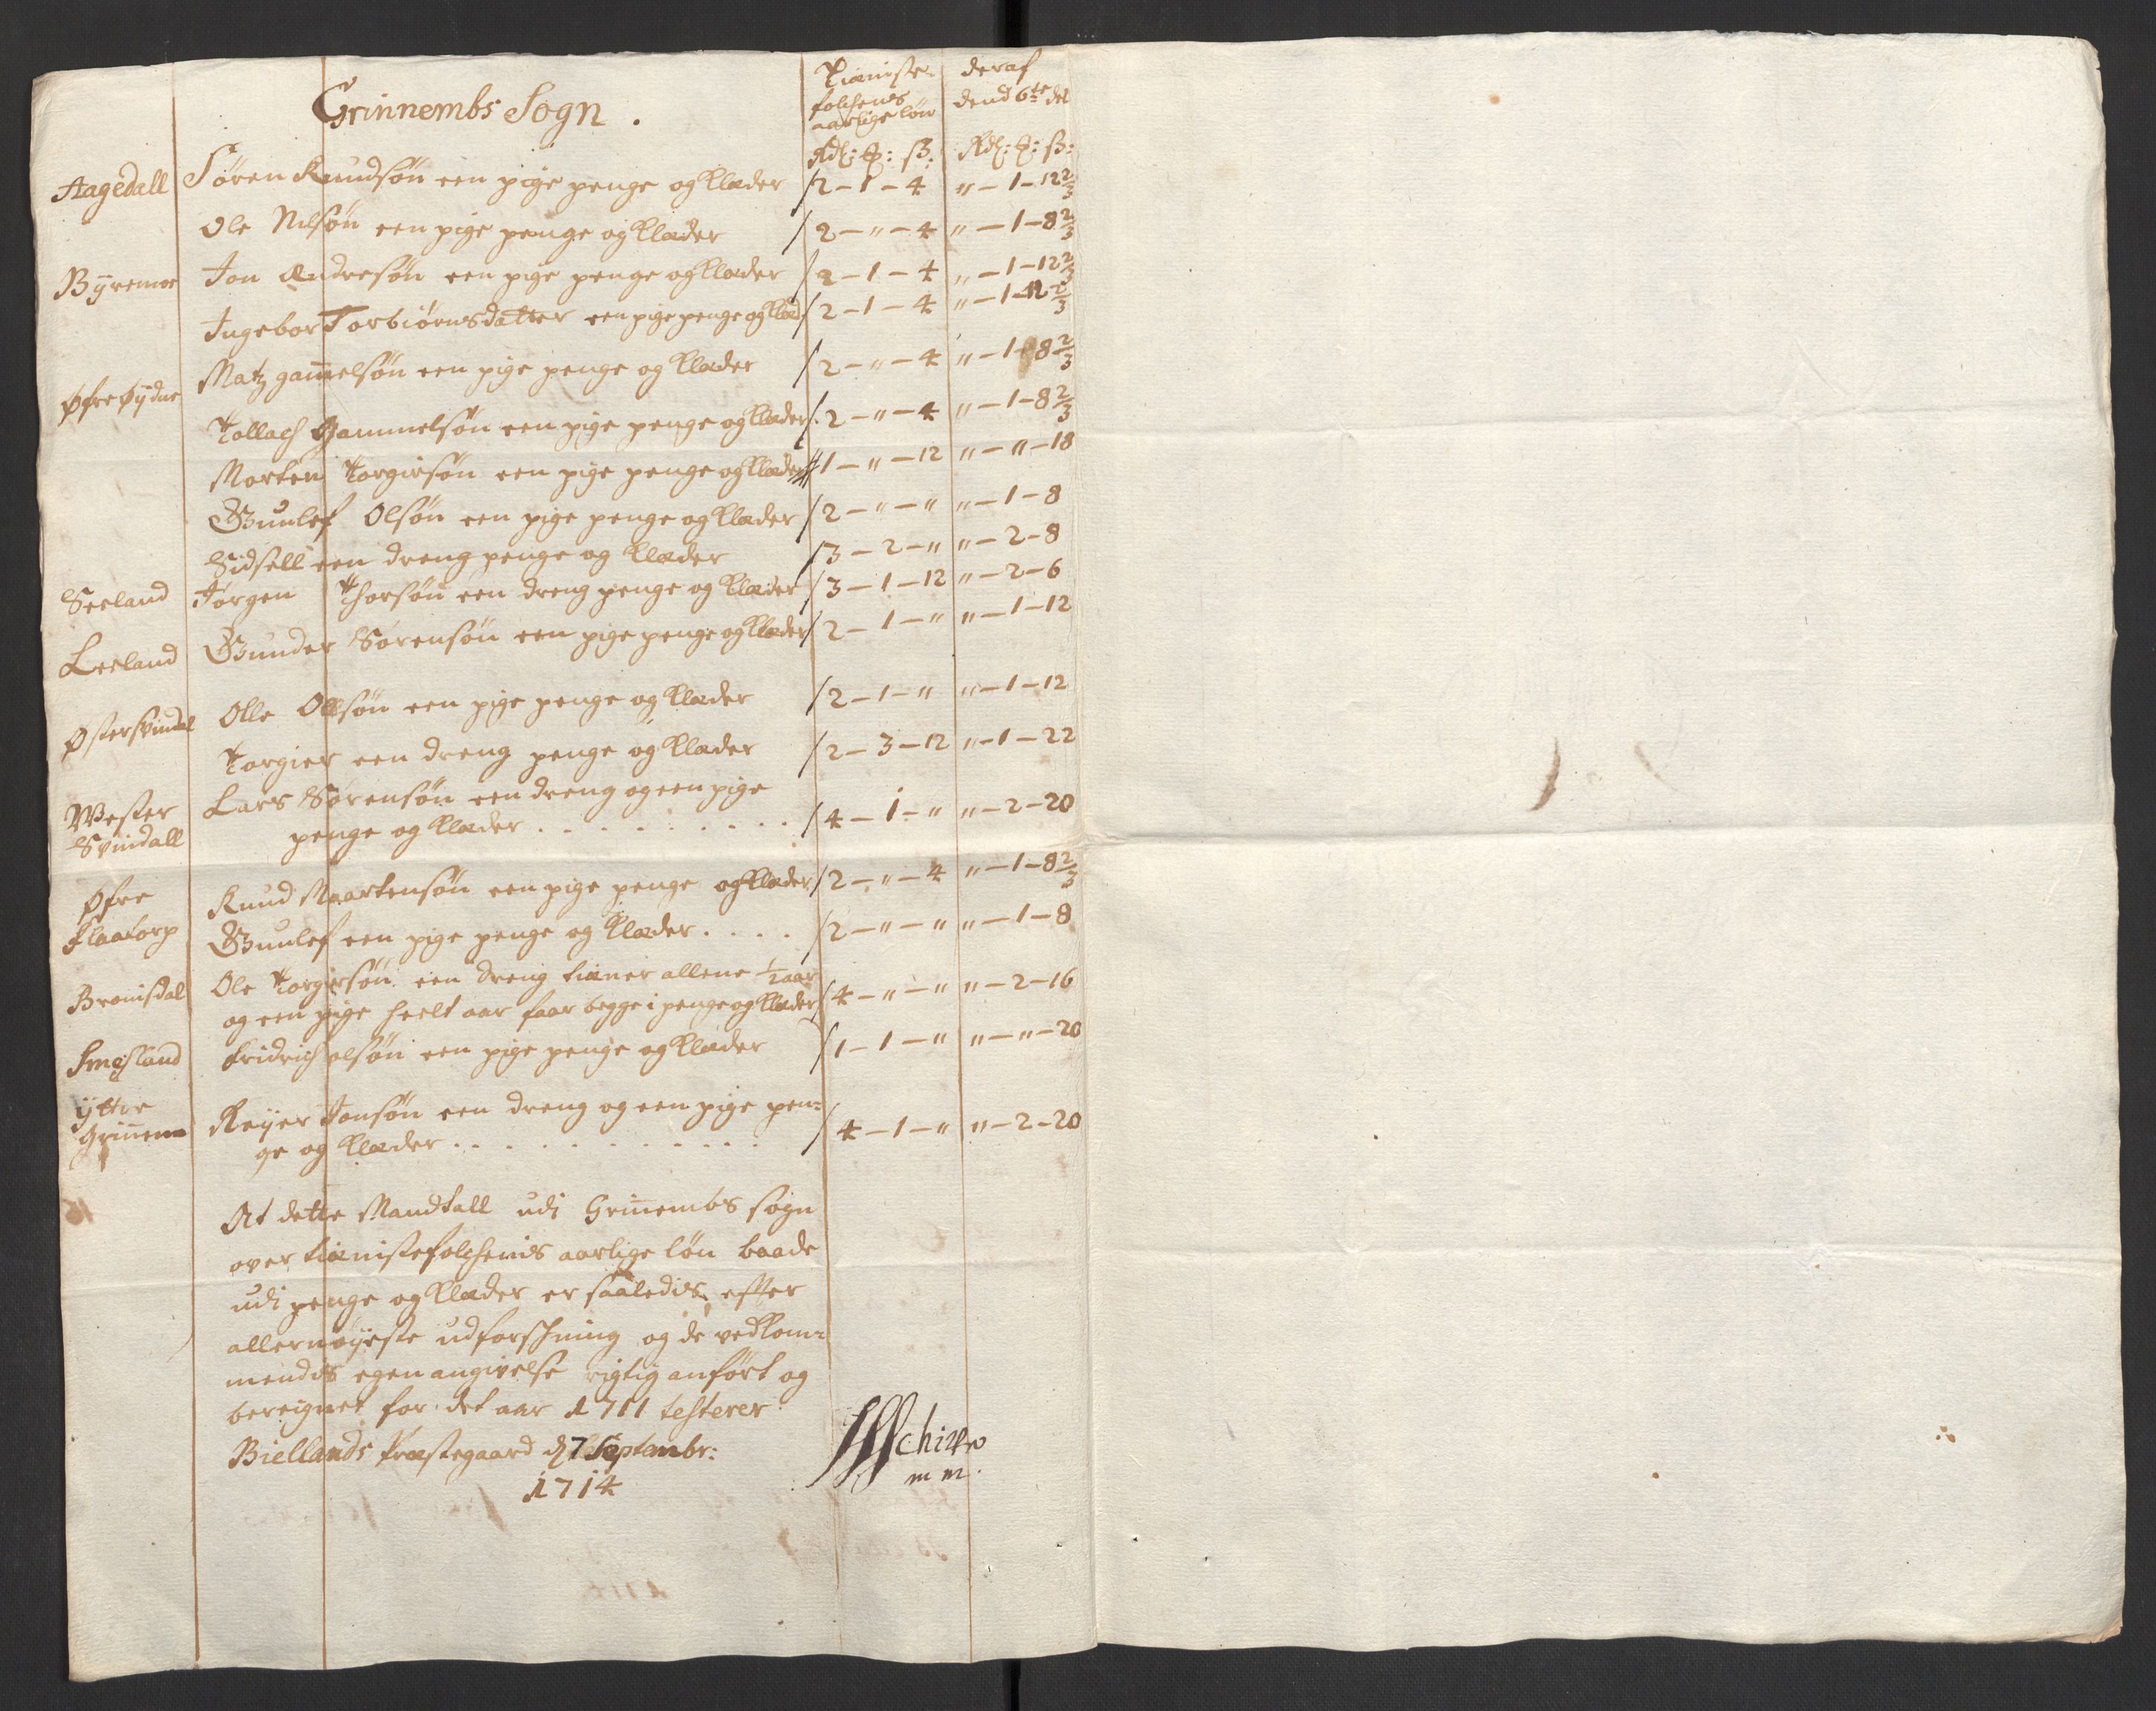 Grinnembs Sogn.
Tieniste- folchens aarlige løn
deraf dend 6te del
Rdl: : ß: Rdl: : ß:
Aagedall Søren Knudsøn een pige penge og klæder 2 - 1 - 4 " - 1 - 12 2/3
Ole Nilsøn een pige penge og klæder 2 - " - 4 " - 1 - 8 2/3
Byremoe Jon Andresøn een pige penge og klæder 2 - 1 - 4 " - 1 - 12 2/3
Ingebor Torbiørnsdatter een pige penge og klæd: 2 - 1 - 4 " - 1 - 12 2/3
Øfre Øydne Matz gam̄elsøn een pige penge og klæder 2 - " - 4 " - 1 - 8 2/3
Tollach Gammelsøn een pige penge og klæder 2 - " - 4 " - 1 - 8 2/3
Morten Torgirsøn een pige penge og klæder 1 - " - 12 " - " - 18
Gunlef Olsøn een pige penge og klæder 2 - " - " " - 1 - 8
Sidsell een dreng penge og klæder 3 - 2 - " " - 2 - 8
Seeland Jørgen Thorsøn een dreng penge og klæder 3 - 1 - 12 " - 2 - 6
Leeland Gunder Sørensøn een pige penge og klæder 2 - 1 - " " - 1 - 12
Østersvindal Olle Ollsøn een pige penge og klæder 2 - 1 - " " - 1 - 12
Torgier een dreng penge og klæder 2 - 3 - 12 " - 1 - 22
Wester Svindall Lars Sørensøn een dreng og een pige
penge og klæder . . . . . . . . . 4 - 1 - " " - 2 - 20
Øfre Flaatorp Knud Maartensøn een pige penge og klæder 2 - " - 4 " - 1 - 8 2/3
Gunlef een pige penge og klæder . . . . 2 - " - " " - 1 - 8
Bronisdal Ole Torgirsøn een dreng tiæner allene 1/2 aar
og een pige heelt aar faar begge i penge og klæder 4 - " - " " - 2 - 16
Smesland Fridrich olsøn een pige penge og klæder 1 - 1 - " " - " - 20
ÿttre Grin̄em Reyer Jonsøn een dreng og een pige pen=
ge og klæder . . . . . . . . . 4 - 1 - " " - 2 - 20
At dette Mandtall udi Grin̄embs sogn
over tiænistefolchenis aarlige løn baade
udi penge og klæder er saaledis efter
allernøyeste udforschning og de vedkom=
mendis egen angivelse rigtig anført og
bereignet for det aar 1711 testerer
Biellands Præstegaard d 7 Septembr:
1714
m m.